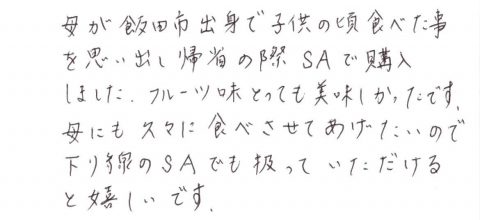 母が飯田市出身で子供の頃食べた事
を思い出し帰省の際SAで購入
しました.フルーツ味とっても美味しかったです.
母にも久々に食べさせてあげたいので
下り線のSAでも扱っていただける
と嬉しいです.